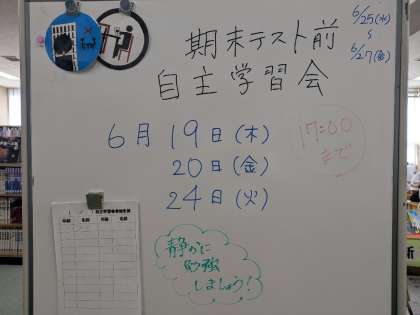 期末テスト前
自主学習会
6/25(水)
〜
6/27(金)
6月19日(木)
20日(金)
24日(火)
17:00
まで
静かに
勉強
しましょう!